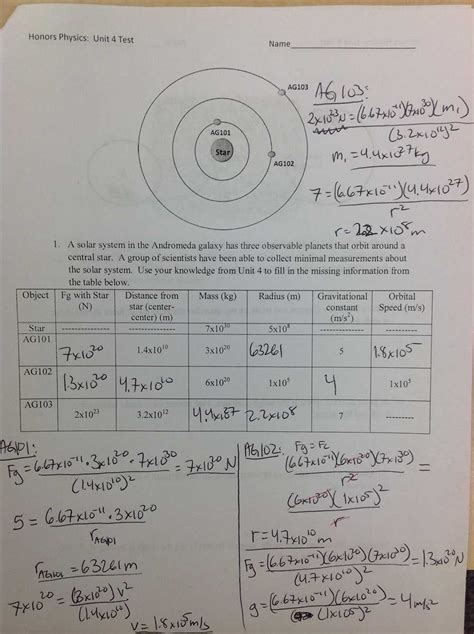 Honors Physics: Unit 4 Test
Name
AG103
AG101
Star
AG102
AG103:
2x10²³N=(6.67x10⁻¹¹)(7x10³⁰)(m₁)
(3.2x10¹²)²
m₁=4.4x10²⁷kg
7=(6.67x10⁻¹¹)(4.4x10²⁷)
r²
r=2.2x10⁸m
1. A solar system in the Andromeda galaxy has three observable planets that orbit around a
central star. A group of scientists have been able to collect minimal measurements about
the solar system. Use your knowledge from Unit 4 to fill in the missing information from
the table below.
Object Fg with Star (N) Distance from star (center-center) (m) Mass (kg) Radius (m) Gravitational constant (m/s²) Orbital Speed (m/s)
Star ------------- ------------- 7x10³⁰ 5x10⁸ ------------- -------------
AG101 7x10²⁰ 1.4x10¹⁰ 3x10²⁰ 63261 5 1.8x10⁵
AG102 1.3x10²⁰ 4.7x10¹⁰ 6x10²⁰ 1x10⁵ 4 1x10⁵
AG103 2x10²³ 3.2x10¹² 4.4x10²⁷ 2.2x10⁸ 7 -------------
AG101:
Fg=6.67x10⁻¹¹·3x10²⁰·7x10³⁰=7x10²⁰N
(1.4x10¹⁰)²
5=6.67x10⁻¹¹·3x10²⁰
r AG101
r AG101=63261m
7x10²⁰=(3x10²⁰)v²
(1.4x10¹⁰)
v=1.8x10⁵m/s
AG102: Fg=Fc
(6.67x10⁻¹¹)(6x10²⁰)(7x10³⁰)=
r²
(6x10²⁰)(1x10⁵)²
r
r=4.7x10¹⁰m
Fg=(6.67x10⁻¹¹)(6x10²⁰)(7x10³⁰)=1.3x10²⁰N
(4.7x10¹⁰)²
g=(6.67x10⁻¹¹)(6x10²⁰)=4m/s²
(1x10⁵)²